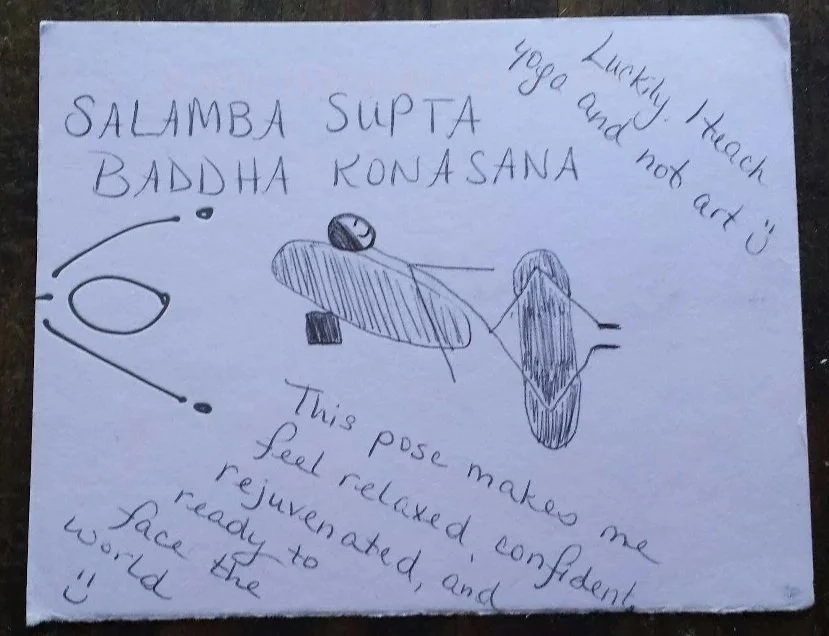 SALAMBA SUPTA
BADDHA KONASANA
Luckily. I teach
yoga and not art
This pose makes me
feel relaxed, confident,
rejuvenated, and
ready to
face the
world